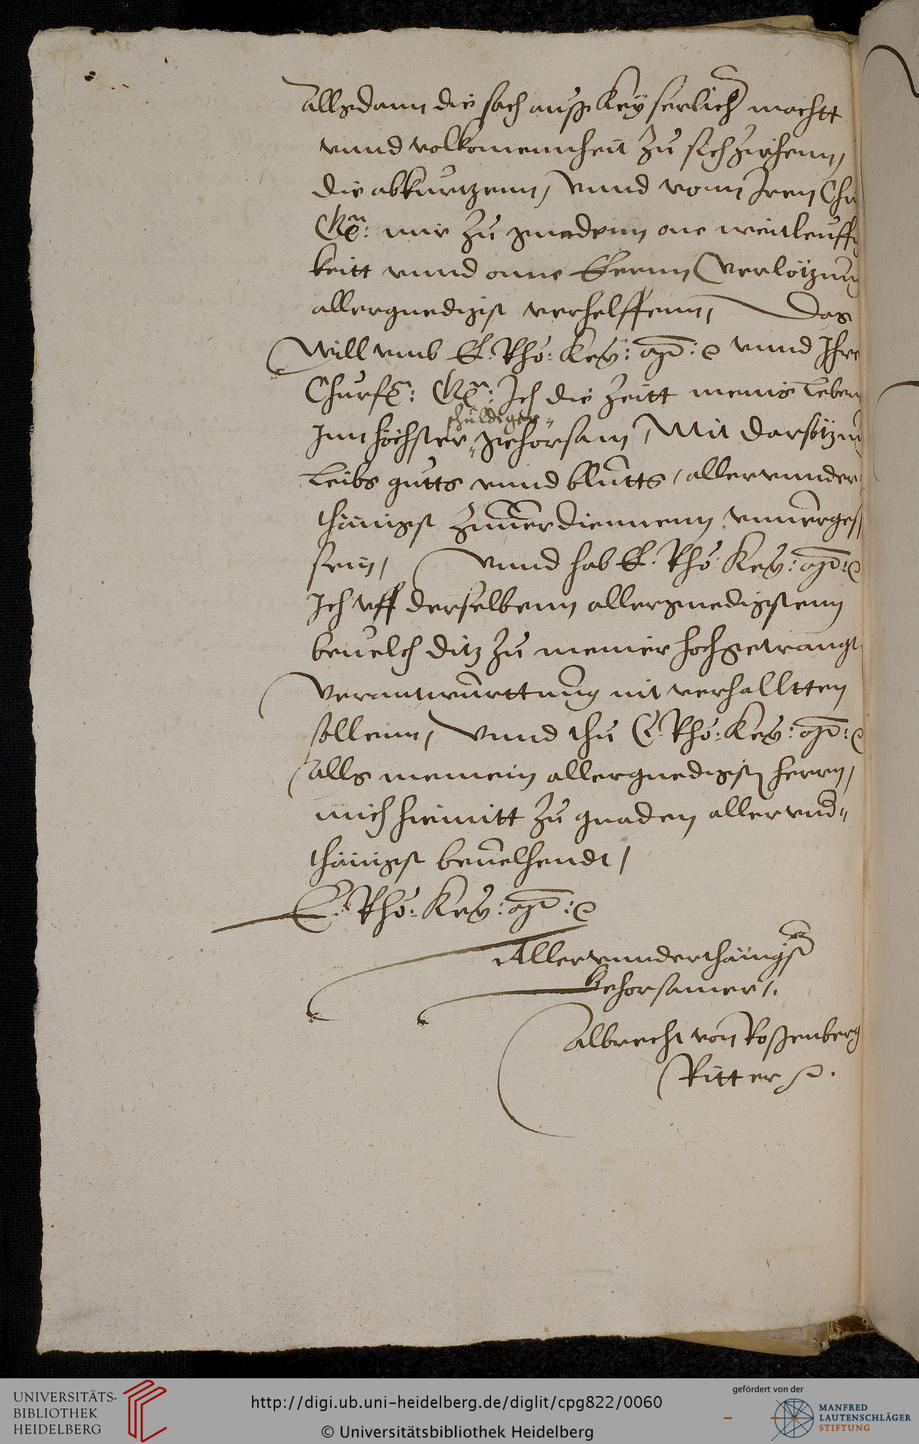 allßdann die sach auß Keyserlich machtt
vnnd volkomennheit zu sich ziehenn,
die abkurtzenn, vnnd vonn Iren Chu
Gn: mir zu gnadenn one weitleuff
keitt vnnd onne Fernn Verlötzung
allergnedigst verhelffenn, Das
Will vmb E. Rho: Key: Mt: vnnd Ihre
Churf: Gn: Ich die Zeitt meins Leben
schuldiger
Inn höchster gehorsam, Mit darsetzun
Leibs gutts vnnd blutts, allervnnder
thänigst zuuerdiennenn vnuerges
sein, vnnd hab E. Rho: Key: Mt:
Ich vff derselbenn allergnedigstenn
beuelch ditz zu meiner hochgetrangt
Verantwurttung nit verhalltten
sollenn, Vnnd thu E. Rho: Key: Mt:
alls meinem allergnedigst herrn,
mich hiemitt zu gnaden allervnd„
thänigst beuelhendt,
E. Rho: Key: Mt:
Allervnnderthänigst
Gehorsamer,.
Albrecht von Roßenberg
Ritter
UNIVERSITÄTS-
BIBLIOTHEK
HEIDELBERG
http://digi.ub.uni-heidelberg.de/diglit/cpg822/0060
© Universitätsbibliothek Heidelberg
gefördert von der
MANFRED
LAUTENSCHLÄGER
STIFTUNG